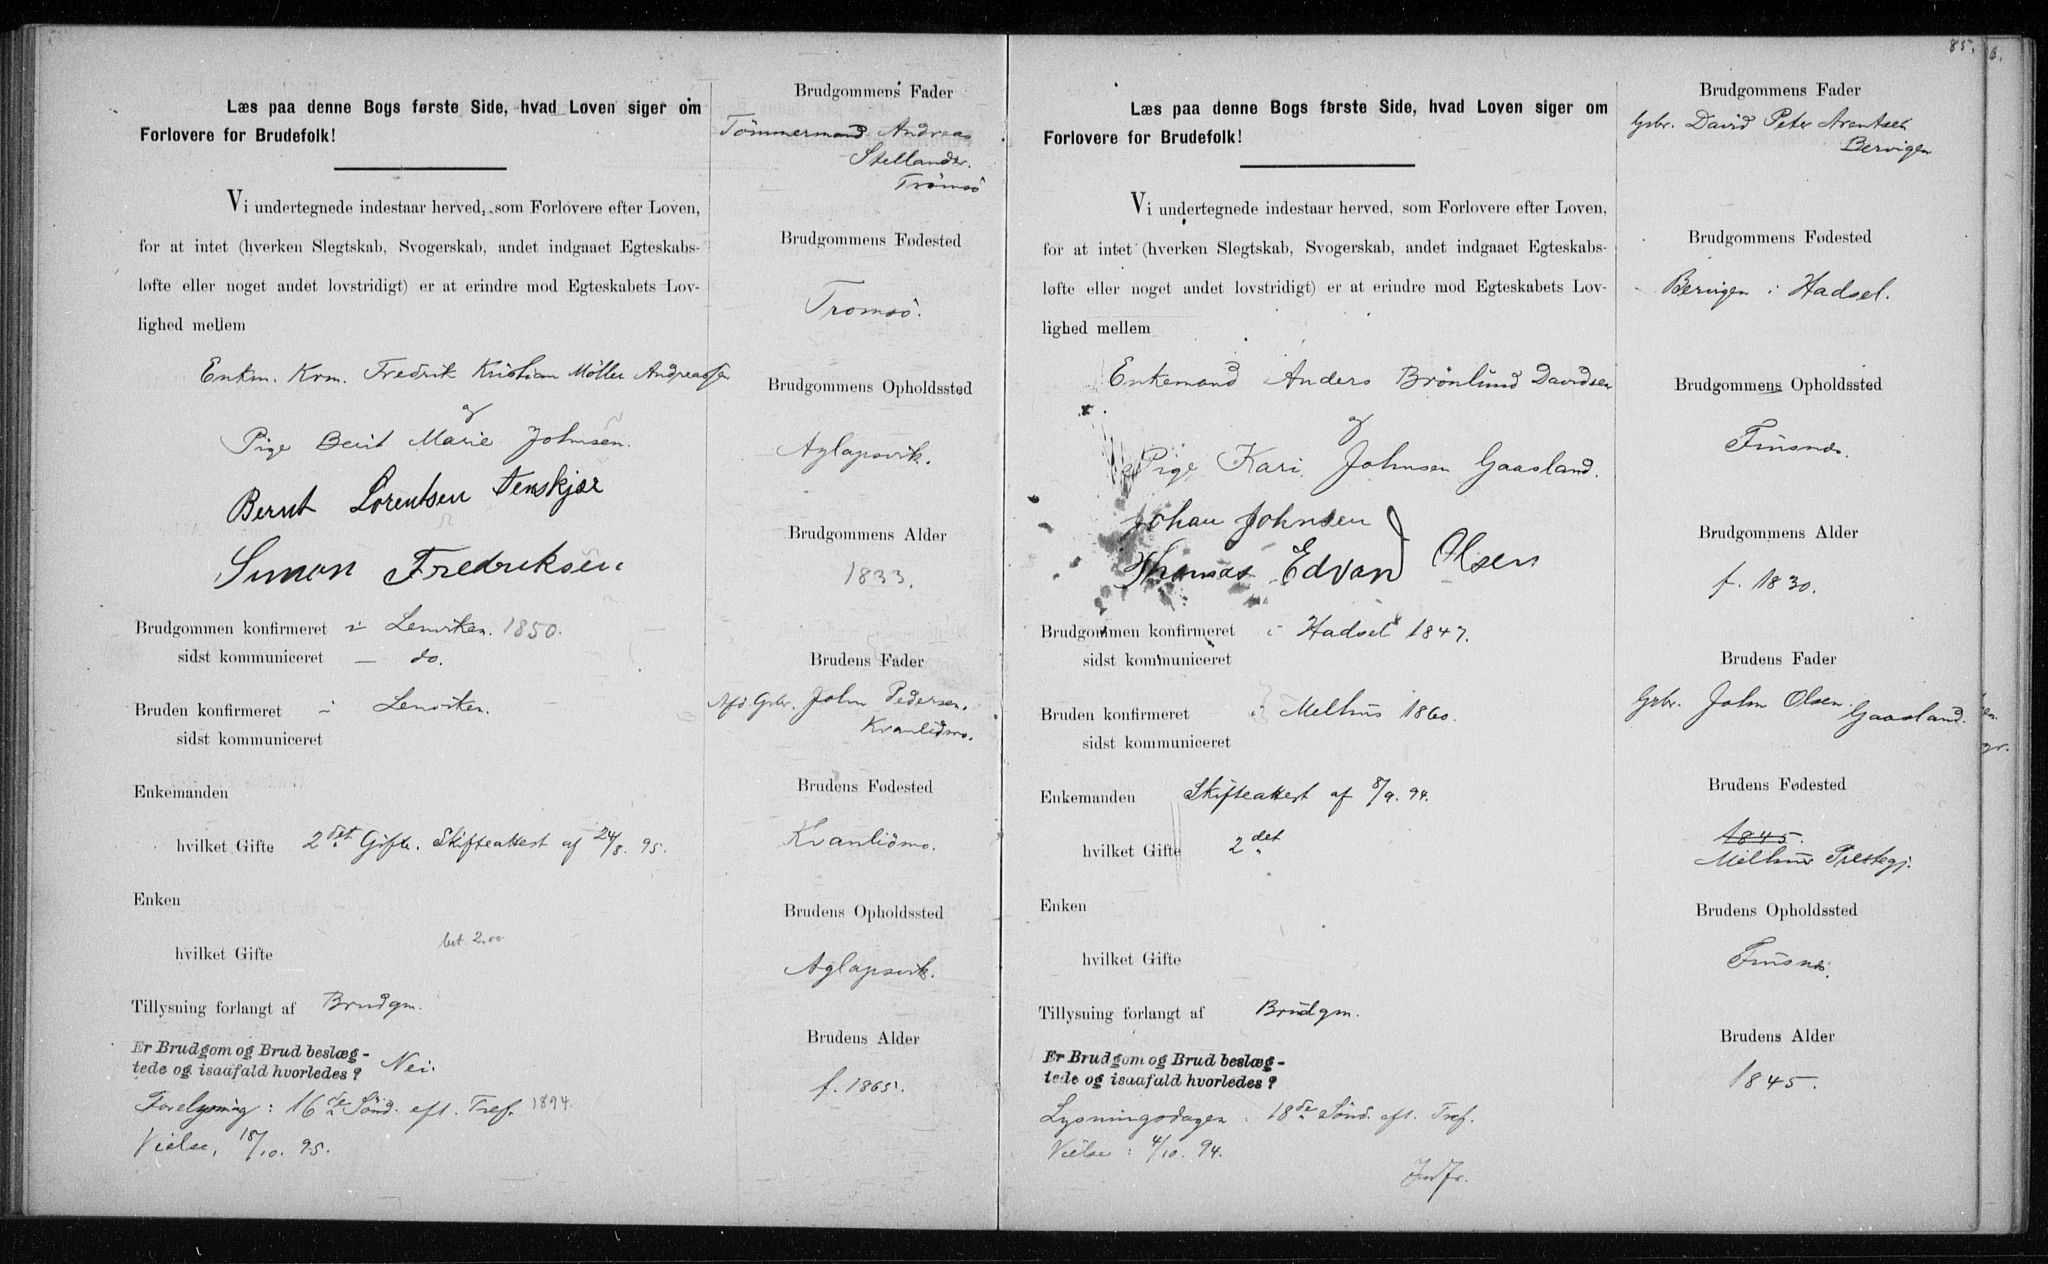 Læs paa denne Bogs første Side, hvad Loven siger om
Forlovere for Brudefolk!
Vi undertegnede indestaar herved, som Forlovere efter Loven,
for at intet (hverken Slegtskab, Svogerskab, andet indgaaet Egteskabs-
løfte eller noget andet lovstridigt) er at erindre mod Egteskabets Lov-
lighed mellem
Enkm. Krm. Fredrik Kristian Möller Andreassen
og
Pige Berit Marie Johnsen.
Bernt Lorentsen Tenskjær
Simon Fredriksen
Brudgommen konfirmeret i Lenviken. 1850.
sidst kommuniceret — do.
Bruden konfirmeret i Lenviken.
sidst kommuniceret
Enkemanden
hvilket Gifte 2det Gifte. Skifteattest af 24/8. 95.
Enken
hvilket Gifte
bet. 2.00
Tillysning forlangt af Brudgm.
Er Brudgom og Brud beslæg-
tede og isaafald hvorledes? Nei.
Forelysning: 16de Sönd. eft. Tref. 1894.
Vielse, 18/10. 95.
Brudgommens Fader
Tömmermand Andreas
Stellander.
Tromsö
Brudgommens Fødested
Tromsö.
Brudgommens Opholdssted
Aglapsvik.
Brudgommens Alder
1833.
Brudens Fader
Afd. Gbr. John Pedersen.
Kvanlidmo.
Brudens Fødested
Kvanlidmo.
Brudens Opholdssted
Aglapsvik.
Brudens Alder
f. 1865.
85.
6.
Læs paa denne Bogs første Side, hvad Loven siger om
Forlovere for Brudefolk!
Vi undertegnede indestaar herved, som Forlovere efter Loven,
for at intet (hverken Slegtskab, Svogerskab, andet indgaaet Egteskabs-
løfte eller noget andet lovstridigt) er at erindre mod Egteskabets Lov-
lighed mellem
Enkemand Anders Brönlund Davidsen
og
Pige Kari Johnsen Gaasland.
Johan Johnsen
Thomas Edvard Olsen
Brudgommen konfirmeret i Hadsel 1847.
sidst kommuniceret
Bruden konfirmeret i Melhus 1860.
sidst kommuniceret
Enkemanden Skifteattest af 8/9. 94.
hvilket Gifte 2det
Enken
hvilket Gifte
Tillysning forlangt af Brudgm.
Er Brudgom og Brud beslæg-
tede og isaafald hvorledes?
Lysningsdagen: 18de Sönd. eft. Tref.
Vielse: 4/10. 94.
Brudgommens Fader
Gbr. David Peter Arentsen
Bervigen
Brudgommens Fødested
Bervigen i Hadsel.
Brudgommens Opholdssted
Finsnes.
Brudgommens Alder
f. 1830.
Brudens Fader
Gbr. John Olsen.
Gaasland.
Brudens Fødested
1845.
Melhus Prestegj.
Brudens Opholdssted
Finsnes.
Brudens Alder
1845.